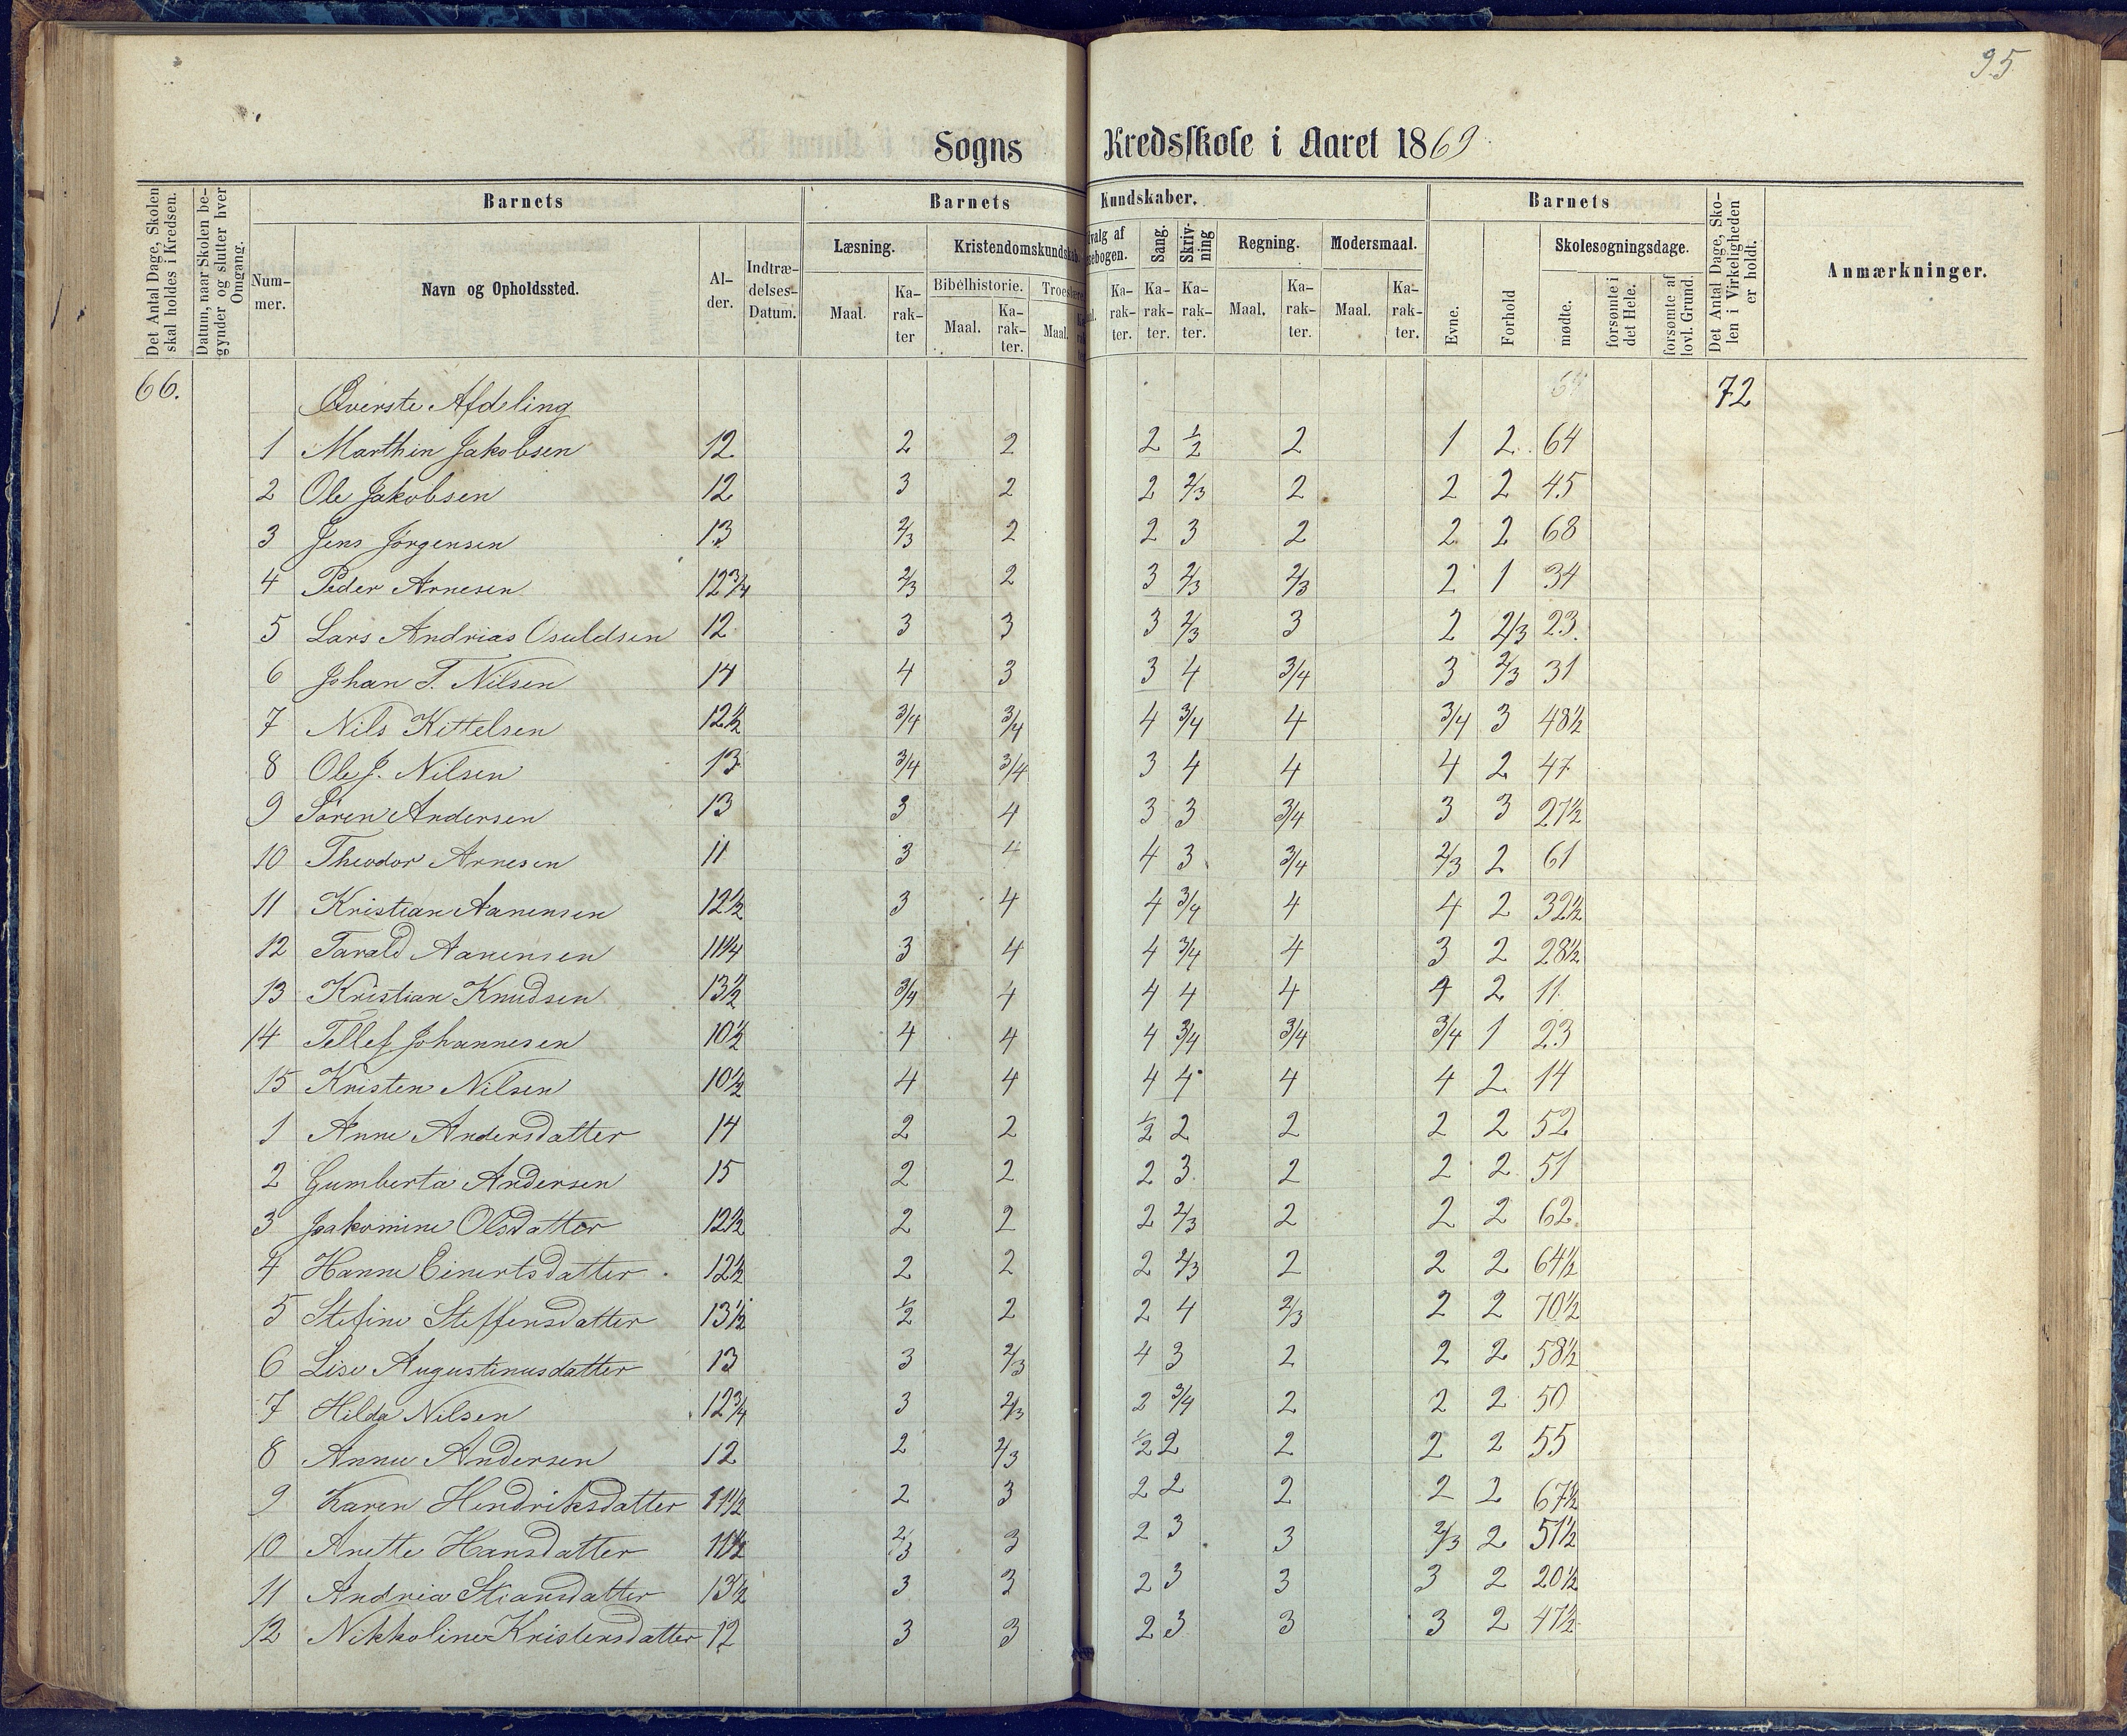 95
Sogns Kredsskole i Aaret 1869
Det Antal Dage, Skolen skal holdes i Kredsen.
Datum, naar Skolen begynder og slutter hver Omgang.
Barnets
Nummer.
Navn og Opholdssted.
Alder.
Indtrædelses-Datum.
Barnets Kundskaber.
Læsning.
Maal.
Karakter
Kristendomskundskab.
Bibelhistorie.
Maal.
Karakter.
Maal.
Karakter.
Sang.
Karakter.
Skrivning
Karakter.
Regning.
Maal.
Karakter.
Modersmaal.
Maal.
Karakter.
Barnets
Evne.
Forhold
Skolesøgningsdage.
mødte.
forsømte i det Hele.
forsømte af lovl. Grund.
Det Antal Dage, Skolen i Virkeligheden er holdt.
Anmærkninger.
66. Øverste Afdeling 72
1 Marthin Jakobsen 12 2 2 2 1/2 2 1 2 64
2 Ole Jakobsen 12 3 2 2 2/3 2 2 2 45
3 Jens Jørgensen 13 2/3 2 2 3 2 2 2 68
4 Peder Arnesen 12 3/4 2/3 2 3 2/3 2/3 2 1 34
5 Lars Andrias Osuldsen 12 3 3 3 2/3 3 2 2/3 23.
6 Johan T. Nilsen 14 4 3 3 4 3/4 3 2/3 31
7 Nils Kittelsen 12 1/2 3/4 3/4 4 3/4 4 3/4 3 48 1/2
8 Ole J. Nilsen 13 3/4 3/4 3 4 4 4 2 47
9 Søren Andersen 13 3 4 3 3 3/4 3 3 27 1/2
10 Theodor Arnesen 11 3 4 4 3 3/4 2/3 2 61
11 Kristian Aanensen 12 1/2 3 4 4 3/4 4 4 2 32 1/2
12 Tarald Aanensen 11 1/4 3 4 4 3/4 4 3 2 28 1/2
13 Kristian Knudsen 13 1/2 3/4 4 4 4 4 4 2 11
14 Tellef Johannesen 10 1/2 4 4 4 3/4 3/4 3/4 1 23
15 Kristen Nilsen 10 1/2 4 4 4 4 4 4 2 14
1 Anne Andersdatter 14 2 2 1/2 2 2 2 2 52
2 Gumberta Andersen 15 2 2 2 3 2 2 2 51
3 Jaakomine Olsdatter 12 1/2 2 2 2 2/3 2 2 2 62.
4 Hanne Einertsdatter 12 1/2 2 2 2 2/3 2 2 2 64 1/2
5 Stefine Steffensdatter 13 1/2 1/2 2 2 4 2/3 2 2 70 1/2
6 Lise Augustinusdatter 13 3 2/3 4 3 2 2 2 58 1/2
7 Hilda Nilsen 12 3/4 3 2/3 2 3/4 2 2 2 50
8 Anne Andersen 12 2 2/3 1/2 2 2 2 2 55
9 Karen Hendriksdatter 11 1/2 2 3 2 2 2 2 2 67 1/2
10 Anette Hansdatter 11 1/2 2/3 3 2 3 3 2/3 2 51 1/2
11 Andrea Stiansdatter 13 1/2 3 3 2 3 3 3 2 20 1/2
12 Nikkoline Kristensdatter 12 3 3 2 3 3 3 2 47 1/2